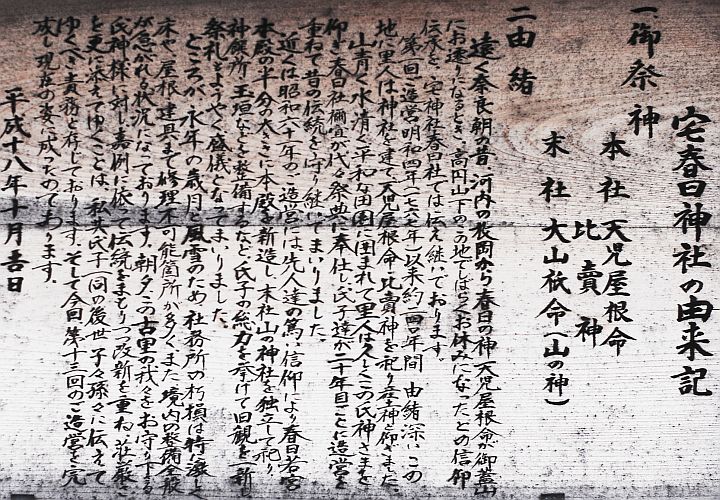 宅春日神社の由来記
一、御祭神
本社 天児屋根命
比賣神
末社 大山祇命(山の神)
二、由緒
遠く奈良朝の昔、河内の枚岡から春日の神(天児屋根命)が御蓋山
にお遷りになるとき、高円山下のこの地でしばらくお休みになったとの信仰
伝承を、宅神社春日社では伝え継いでおります。
第一回ご造営明和四年(一七六八年)以来約二四〇年間 由緒深いこの
地に里人は神社を建て、天児屋根命・比賣神を祀り産土神と仰ぎました。
山青く水清く平和な田園に囲まれて里人は久しくこの氏神さまを
仰ぎ、春日社禰宜が代々祭典に奉仕し、氏子達が二十年目ごとに造営を
重ねて昔の伝統を守り継いでまいりました。
近くは昭和六十一年のご造営には先人達の篤い信仰により春日若宮
本殿の半分の太さに本殿を新造し、末社山の神社を独立して祀り、
神饌所、玉垣などを整備するなど、氏子の総力を挙げて旧観を一新し
祭礼もようやく盛儀となってまいりました。
ところが、永年の歳月と風雪のため、社務所の朽損は特に激しく
床や屋根・建具まで修理不可能箇所が多く、また境内の整備全般
が急がれる状況になっております。朝夕この古里の我々をお守り下さる
氏神様に対し嘉例に依って伝統をまもりつつ改新を重ね、荘厳さ
を更に添えてゆくことは、私共氏子一同の後世子々孫々に伝えて
ゆくべき責務と存じております。そして今回第十三回のご造営を完
成し現在の姿に成ったのであります。
平成十八年十月吾日